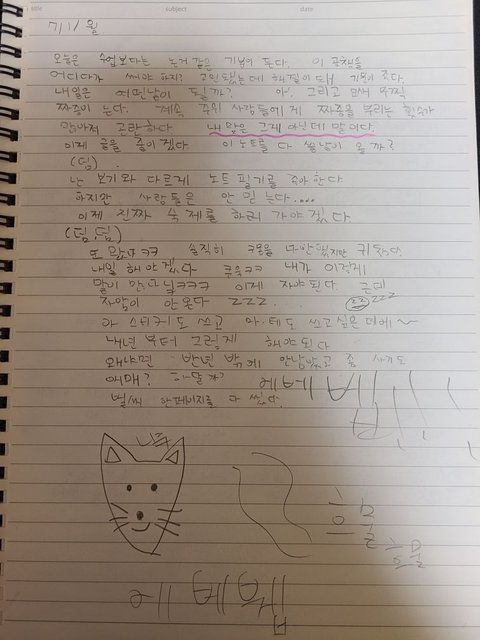 title subject date
7/1/월
오늘은 수업보다는 논거 같은 기분이 든다. 이 공책을
어디다가 써야 하지? 고민했는데 해결이 돼 기쁘다.
내일은 어떤날이 될까? 아, 그리고 요새 부쩍
짜증이 는다. 계속 주위 사람들에게 짜증을 부리는 횟수가
많아져 곤란하다. 내 맘은 그게 아닌데 말이다.
이제 글을 줄이겠다. 이 노트를 다 쓸날이 올까?
(덤)
난 보기와 다르게 노트 필기를 좋아한다.
하지만 사람들은 안 믿는다....
이제 진짜 숙제를 하러 가야겠다.
(덤, 덤)
또 왔다ㅋㅋ 솔직히 귀찮다.
내일 해야겠다 쿠욱ㅋㅋ 내가 이렇게
말이 많다닠ㅋㅋ 이제 자야된다. 근데
잠이 안온다 zzz... zzz
아 스티커도 쓰고 마·테도 쓰고 싶은데에~
내년부터 그렇게 해야된다
왜냐면 반년 밖에 안남았고 좀
어때? 하달까?
벌써 한페이지를 다 썼다.
에베베
흐물
흐물
에 베베